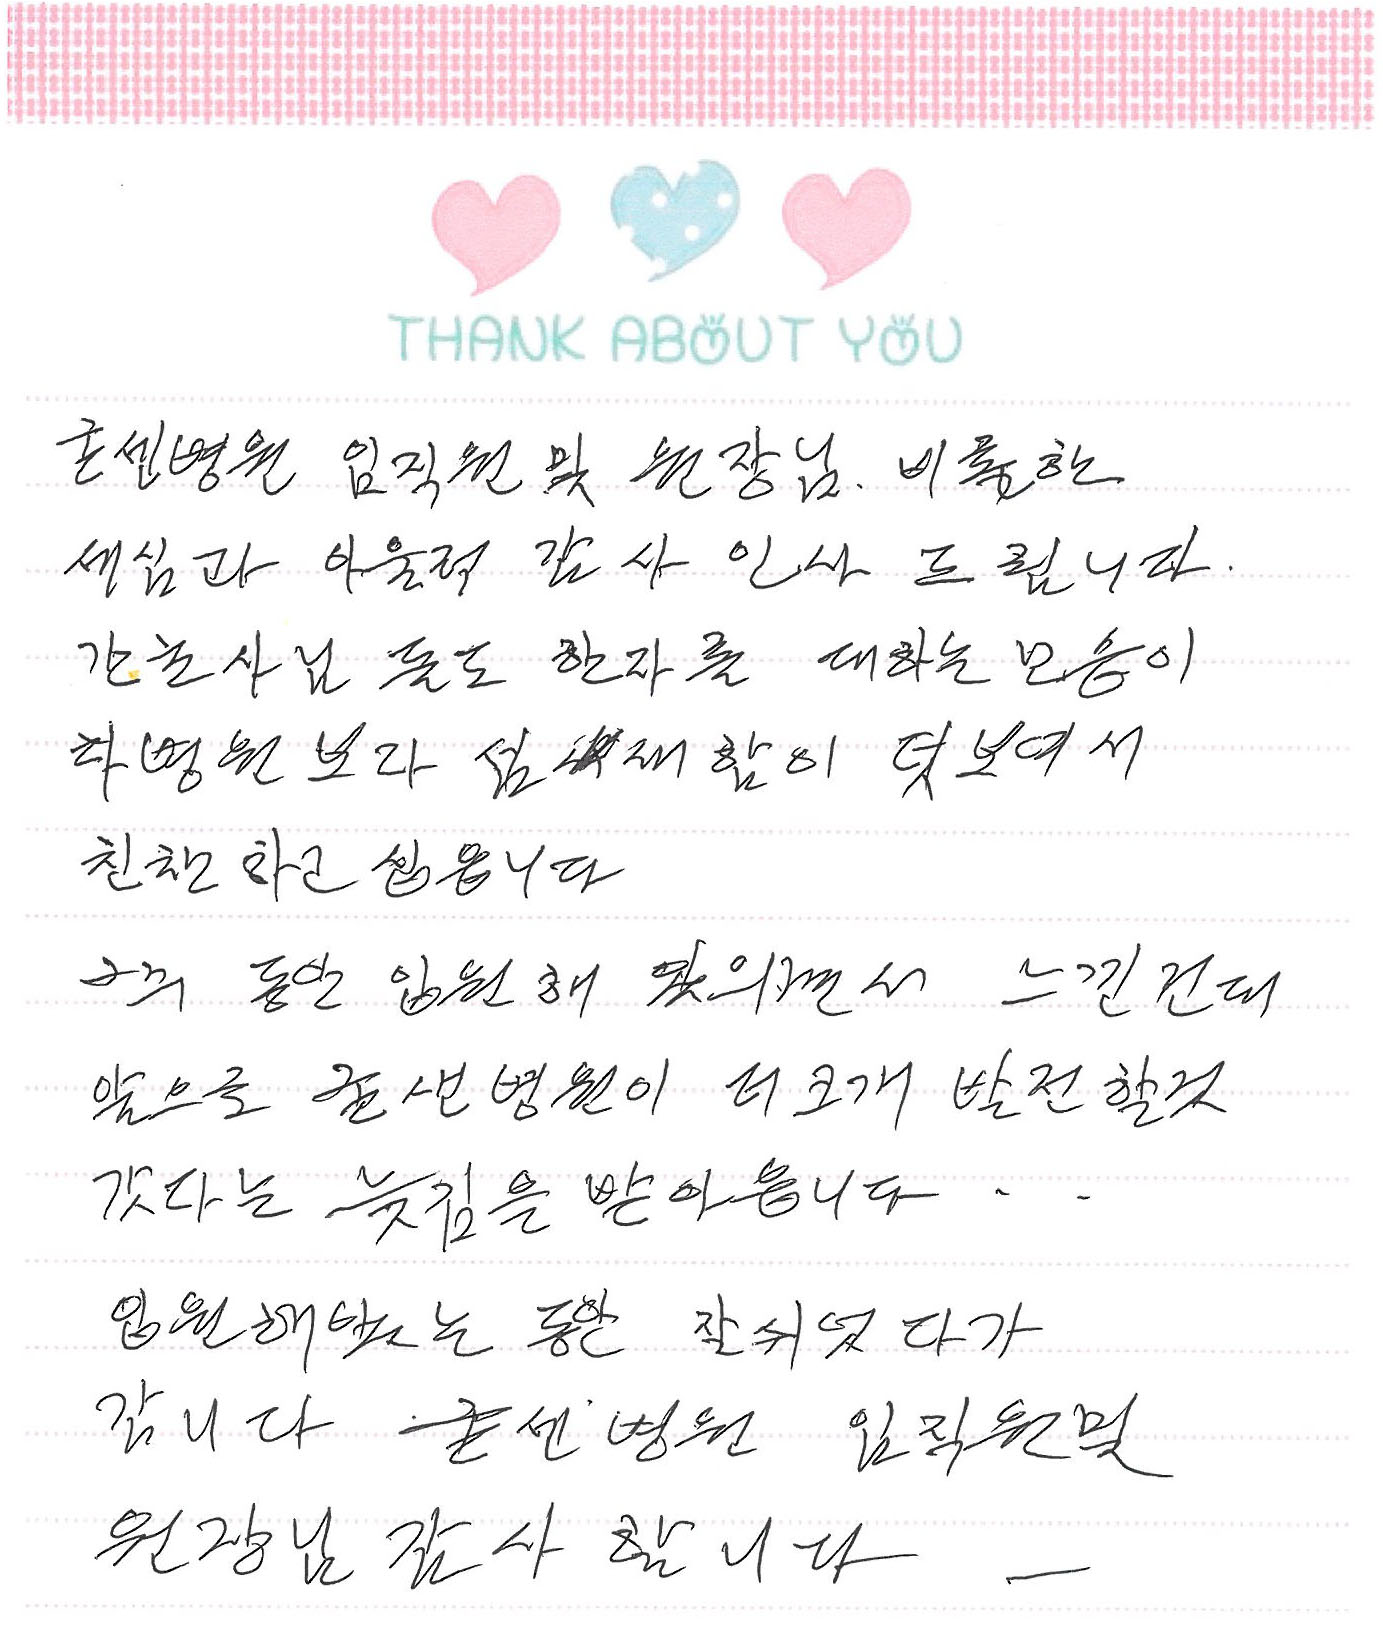 THANK ABOUT YOU
굳센병원 임직원 및 원장님. 비롯한
세심과 아울럭 감사 인사 드립니다.
간호사님 들도 환자를 대하는 모습이
타병원보다 섬세함이 돗보여서
친찬하고 십습니다
동안 입원해 느낀건데
앞으로 굳센병원이 더크개 발전할것
갓다는 늣낌을 받아습니다 . .
입원해 있는 동안 잘쉬었다가
갑니다 굳센병원 임직원및
원장님 감사 합니다